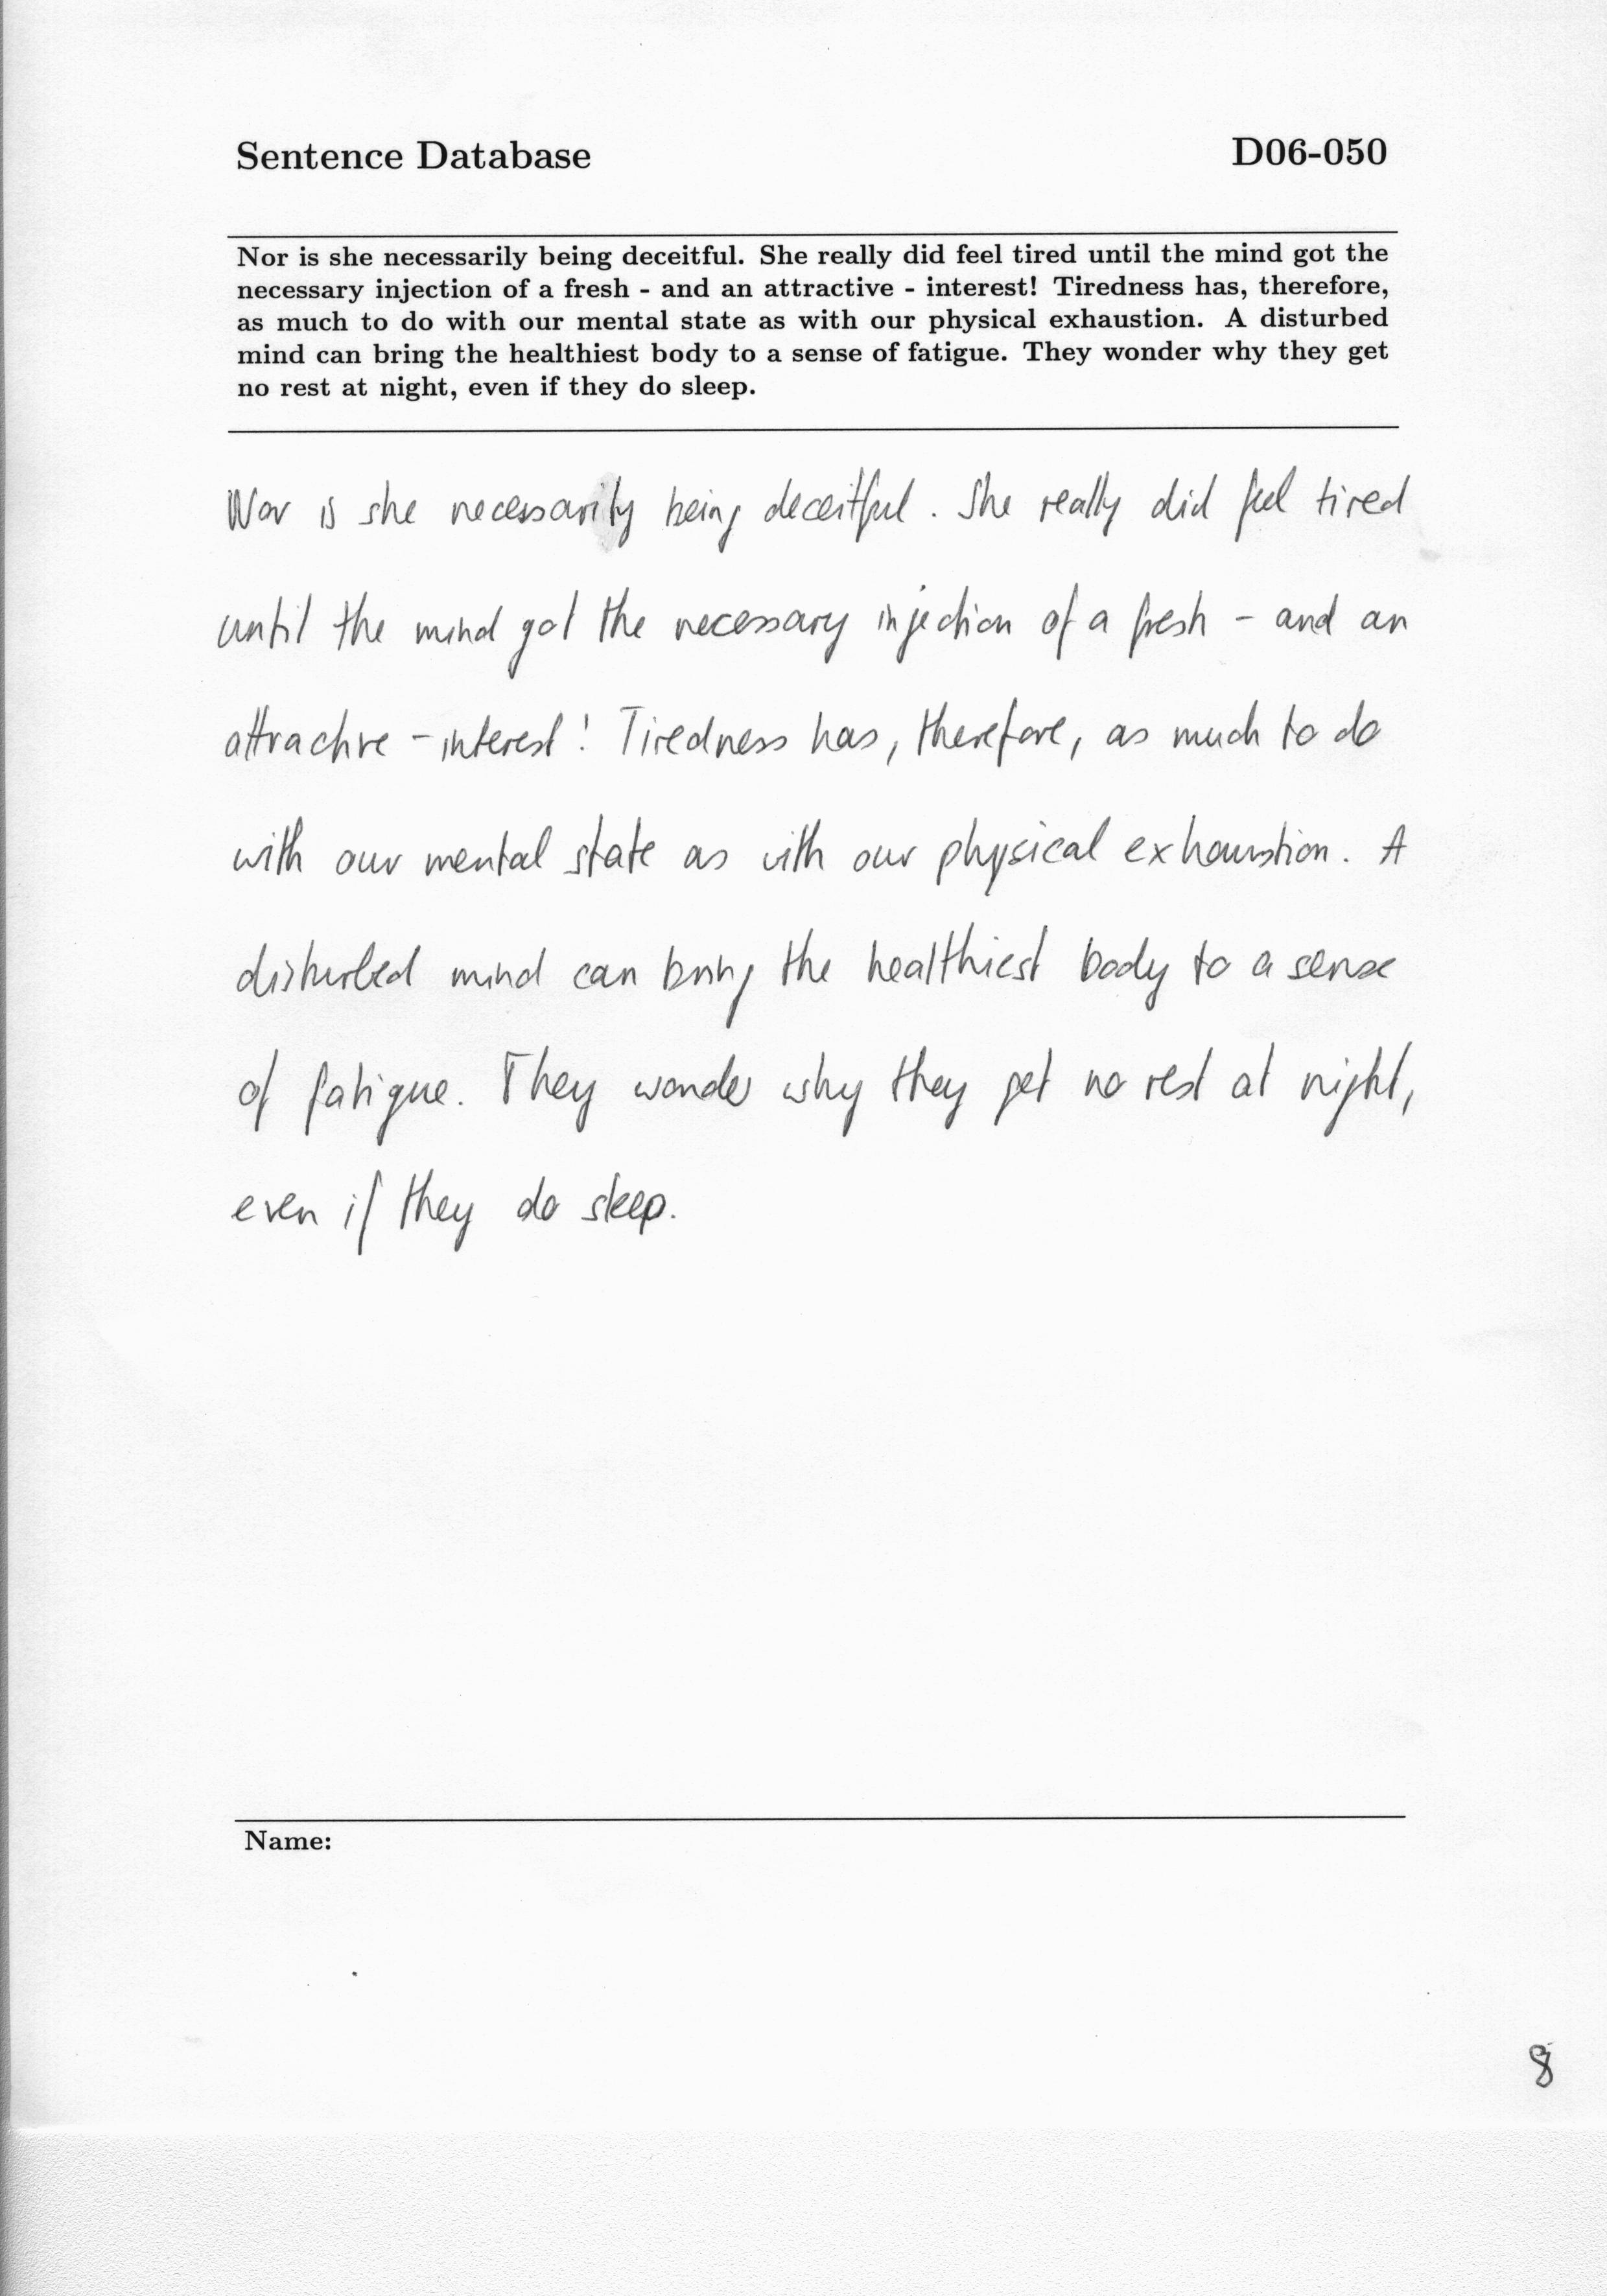 Sentence Database D06-050
Nor is she necessarily being deceitful. She really did feel tired until the mind got the
necessary injection of a fresh - and an attractive - interest! Tiredness has, therefore,
as much to do with our mental state as with our physical exhaustion. A disturbed
mind can bring the healthiest body to a sense of fatigue. They wonder why they get
no rest at night, even if they do sleep.
Nor is she necessarily being deceitful. She really did feel tired
until the mind got the necessary injection of a fresh - and an
attractive - interest! Tiredness has, therefore, as much to do
with our mental state as with our physical exhaustion. A
disturbed mind can bring the healthiest body to a sense
of fatigue. They wonder why they get no rest at night,
even if they do sleep.
Name:
8